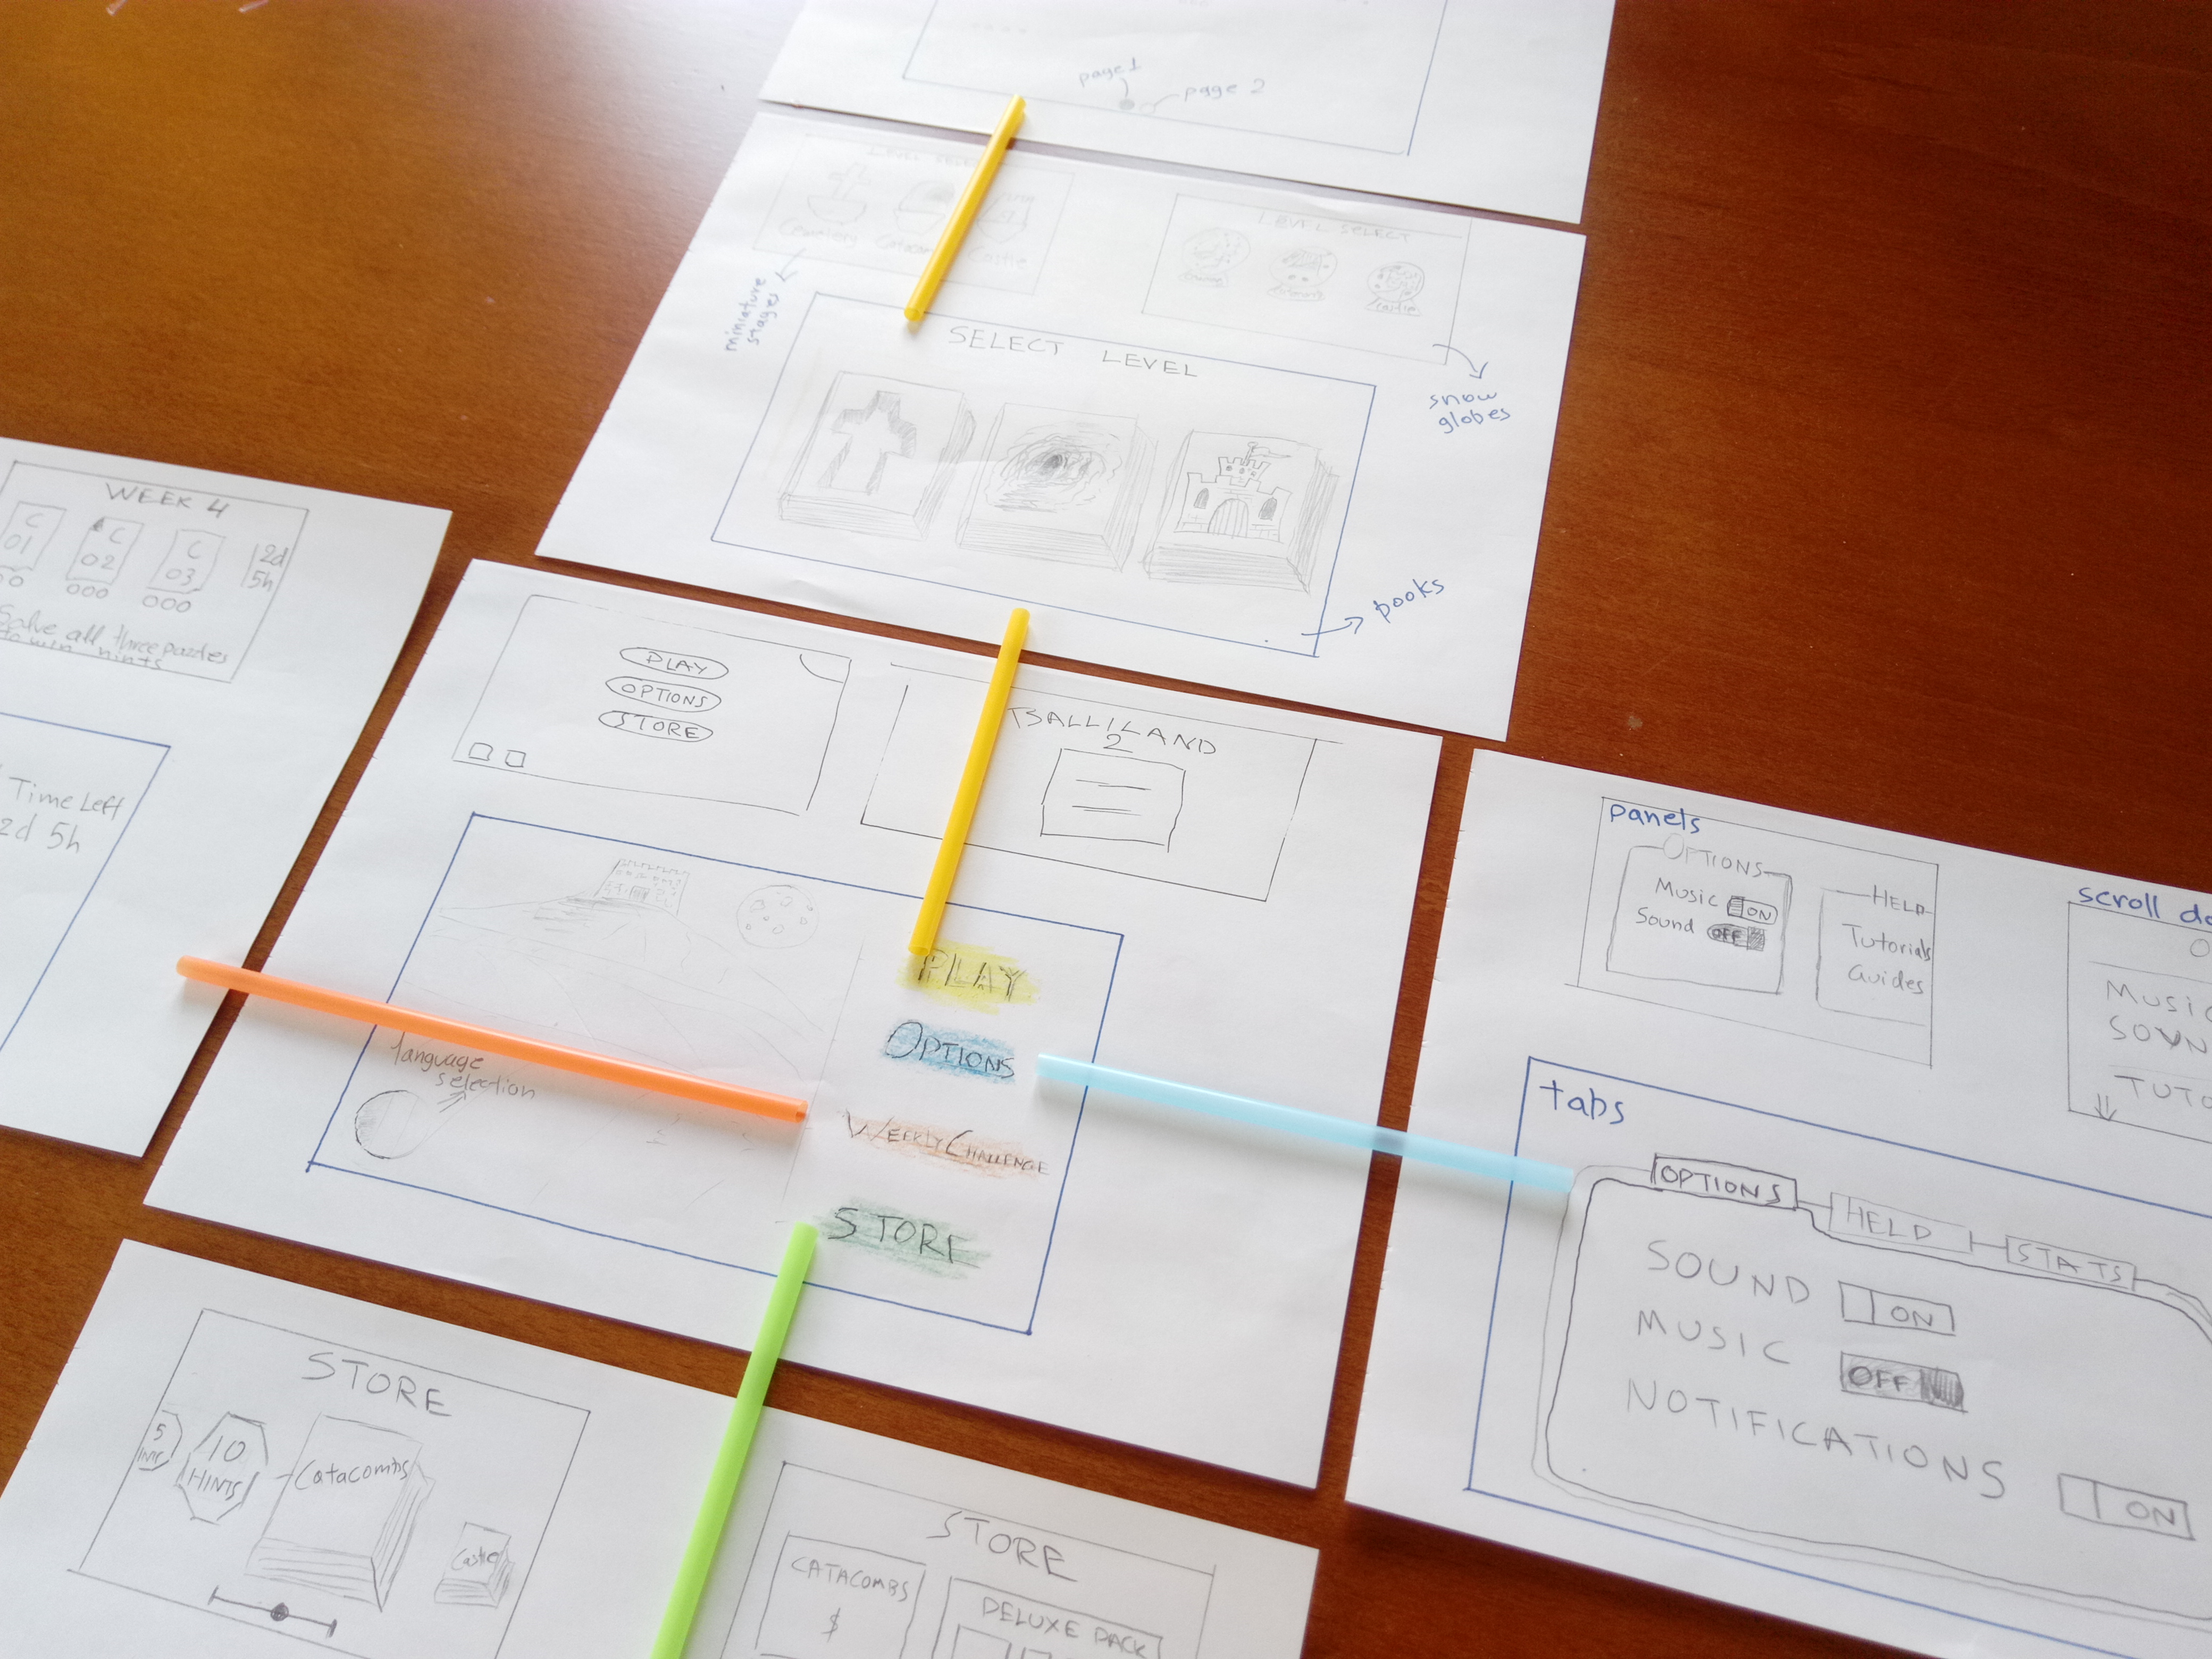 page 1
page 2
LEVEL SELECT
Cemetery
Castle
miniature
stages
LEVEL SELECT
snow
globes
SELECT LEVEL
books
WEEK 4
C
01
C
02
C
03
2d
5h
000
000
Solve all three puzzles
to win hints
Time Left
2d 5h
PLAY
OPTIONS
STORE
2
language
selection
PLAY
OPTIONS
WEEKLY CHALLENGE
STORE
panels
OPTIONS
Music ON
Sound OFF
HELD
Tutorials
Guides
scroll do
O
MUSIC
SOUN
TUTO
tabs
OPTIONS
HELD
STATS
SOUND ON
MUSIC OFF
NOTIFICATIONS ON
STORE
5
10
HINTS
Catacombs
Castle
STORE
CATACOMBS
$
DELUXE PACK